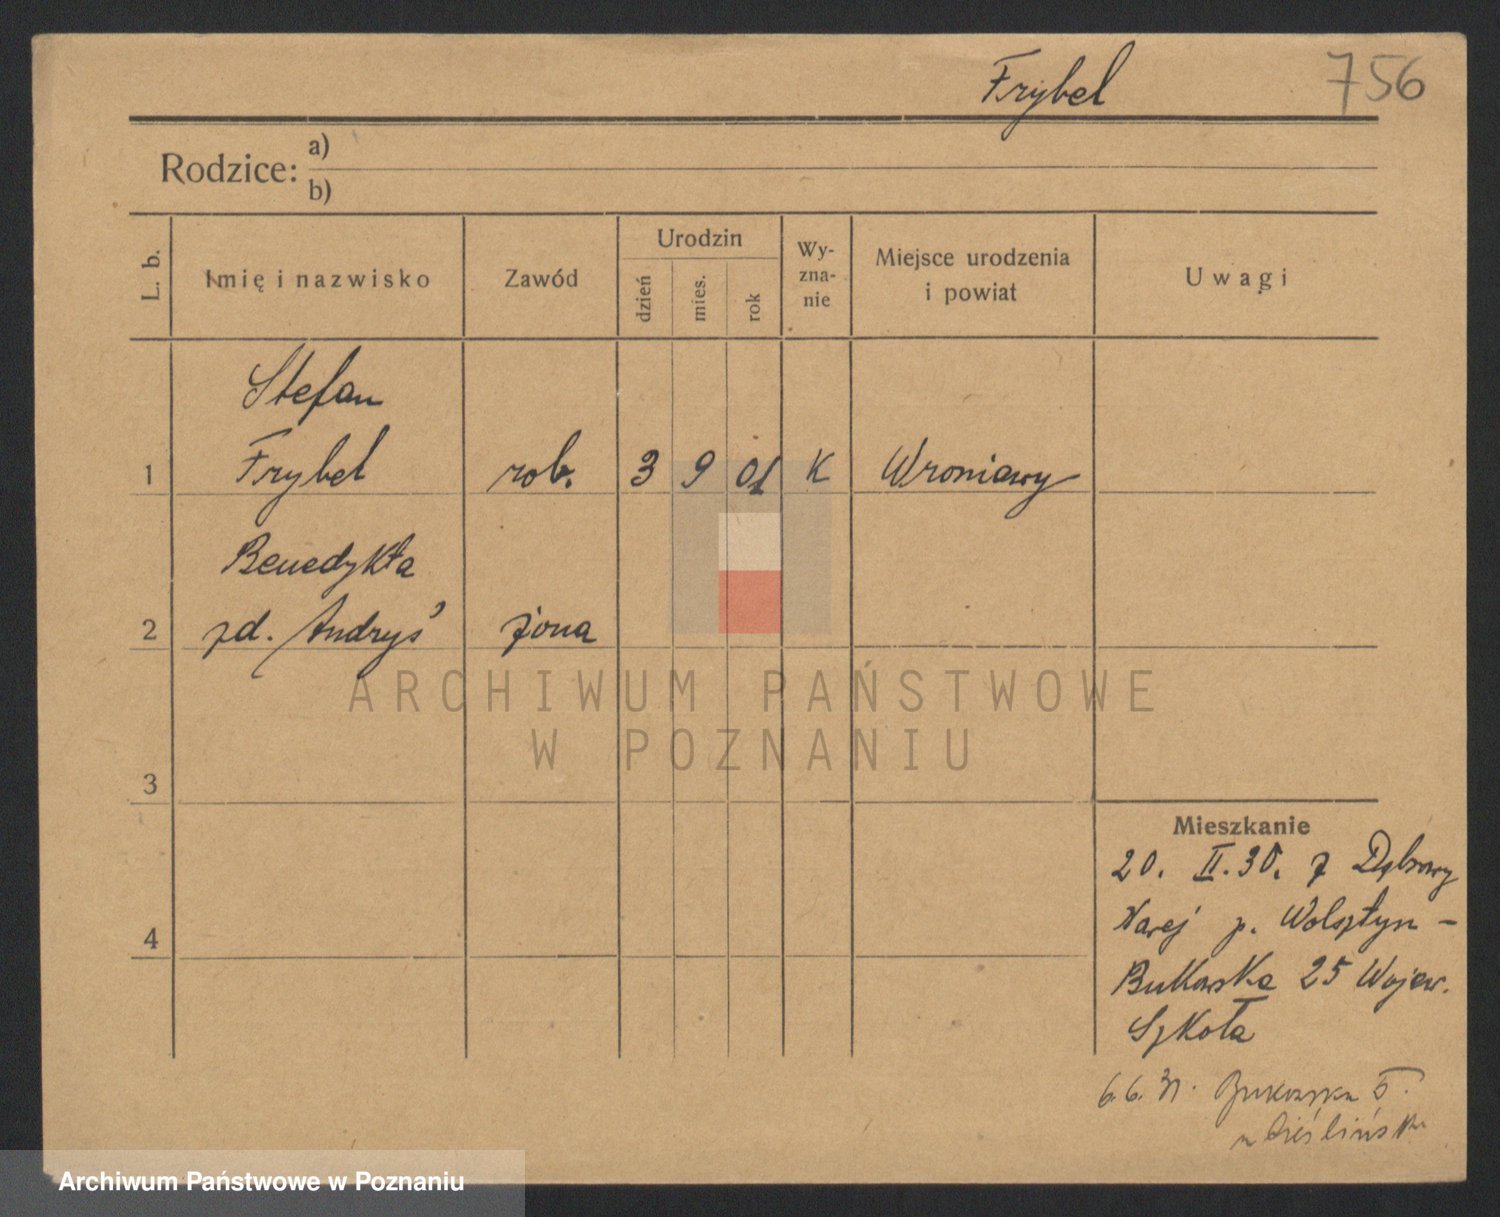 Frybel 756
Rodzice: a)
b)
L. b. Imię i nazwisko Zawód Urodzin dzień mies. rok Wy-zna-nie Miejsce urodzenia i powiat Uwagi
Stefan
1 Frybel rob. 3 9 01 K Wroniawy
Benedykta
2 zd. Andryś żona
ARCHIWUM PAŃSTWOWE
W POZNANIU
3
4
Mieszkanie
20. II. 30. z Dąbrowy
Starej p. Wolsztyn -
Bukowska 25 Wojew.
Szkoła
6.6.31. Bukowska 5.
Archiwum Państwowe w Poznaniu